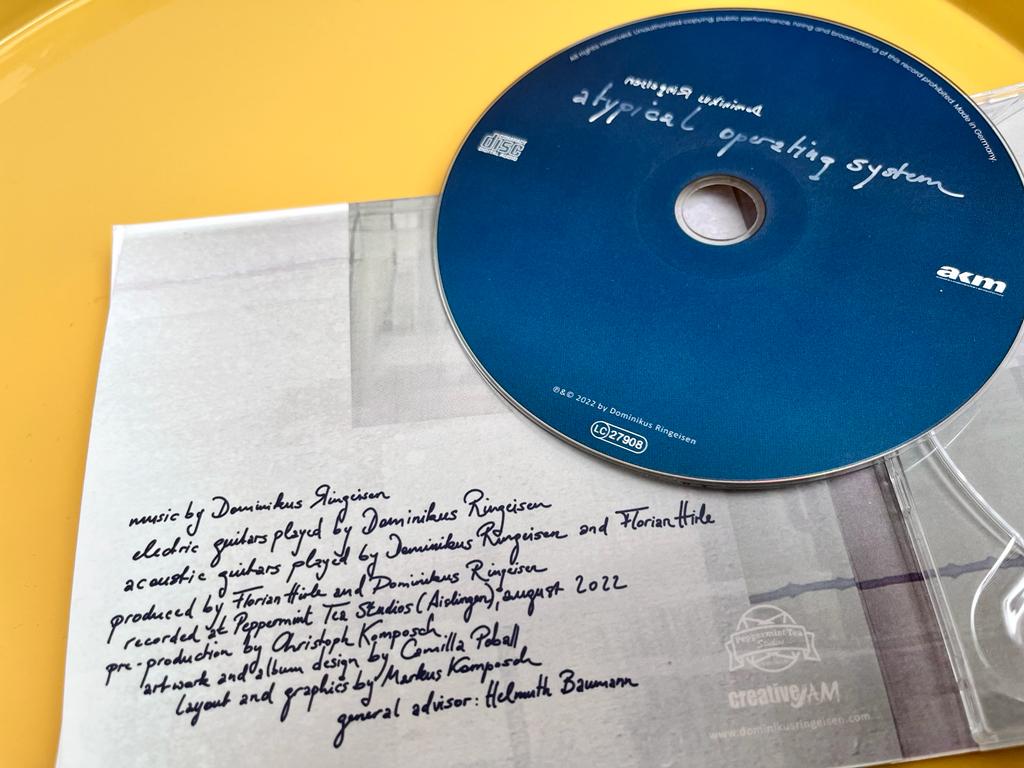 All rights reserved. Unauthorized copying, public performance, hiring and broadcasting of this record prohibited. Made in Germany.
Dominikus Ringeisen
atypical operating system
disc
akm
℗&© 2022 by Dominikus Ringeisen
LC 27908
music by Dominikus Ringeisen
electric guitars played by Dominikus Ringeisen
acoustic guitars played by Dominikus Ringeisen and Florian Hirle
produced by Florian Hirle and Dominikus Ringeisen
recorded at Peppermint Tea Studios (Aislingen), august 2022
pre-production by Christoph Komposch
artwork and album design by Camilla Poball
layout and graphics by Markus Komposch
general advisor: Helmuth Baumann
Peppermint Tea
Studios
creativeJAM
www.dominikusringeisen.com